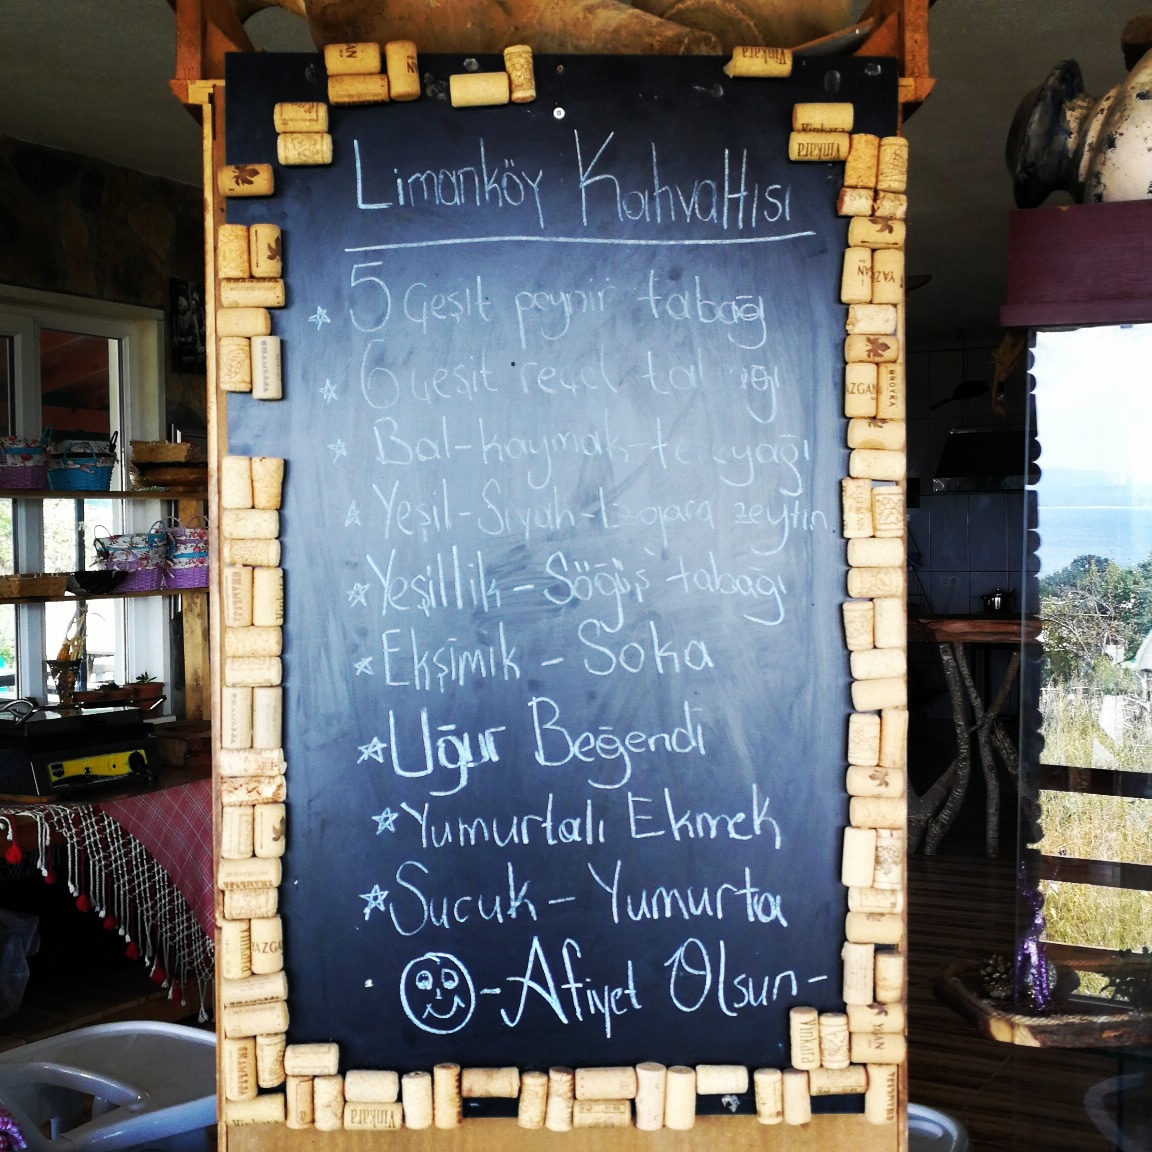 Limanköy Kahvaltısı
5 Çeşit peynir tabağı
6 Çeşit reçel
Bal-kaymak-tereyağı
Yeşil-Siyah-Izgara zeytin
Yeşillik-Söğüş tabağı
Ekşimik - Soka
Uğur Beğendi
Yumurtalı Ekmek
Sucuk - Yumurta
-Afiyet Olsun-
Vinkara
Vinkara
Vinkara
YAZGAN
Vinkara